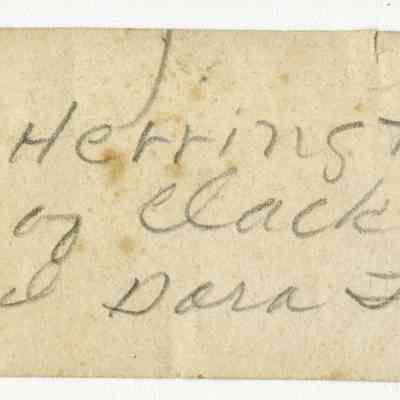 Herringt
oy Clack
d Dora